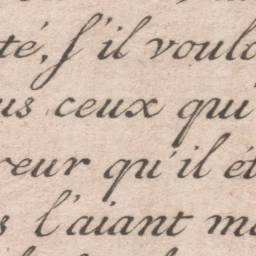 té, s'il voulo
us ceux qui
reur qu'il ét
s l'aiant m